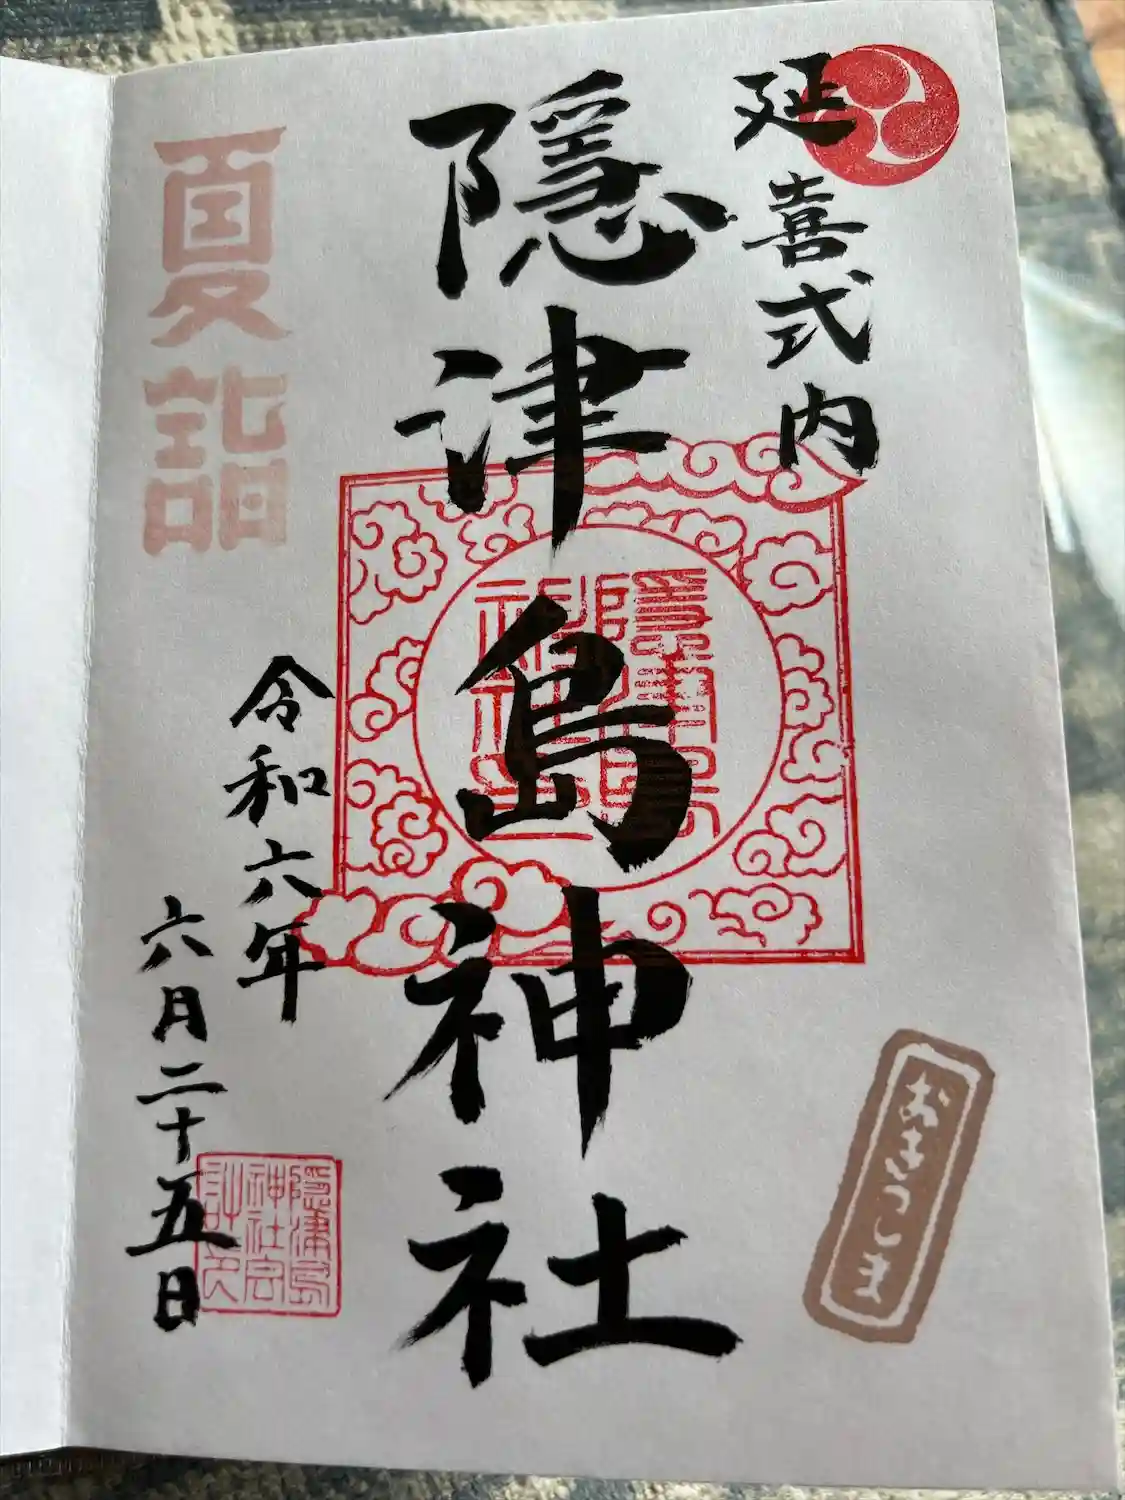 延喜式内
隠津島神社
隠津島
神社
おきつしま
夏詣
令和六年
六月二十五日
隠津島
神社宮
司之印